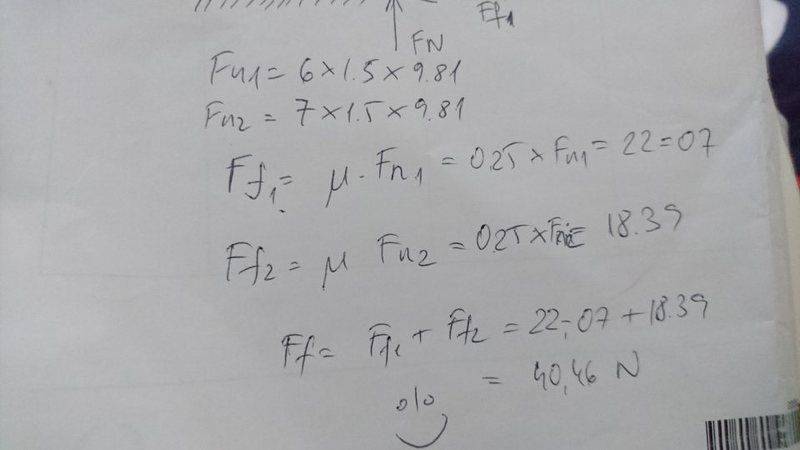 Ff1
FN
Fn1 = 6 × 1.5 × 9.81
Fn2 = 7 × 1.5 × 9.81
Ff1 = μ · Fn1 = 025 × Fn1 = 22=07
Ff2 = μ Fn2 = 025 × = 18.39
Ff = Ff1 + Ff2 = 22,07 + 18.39
= 40,46 N